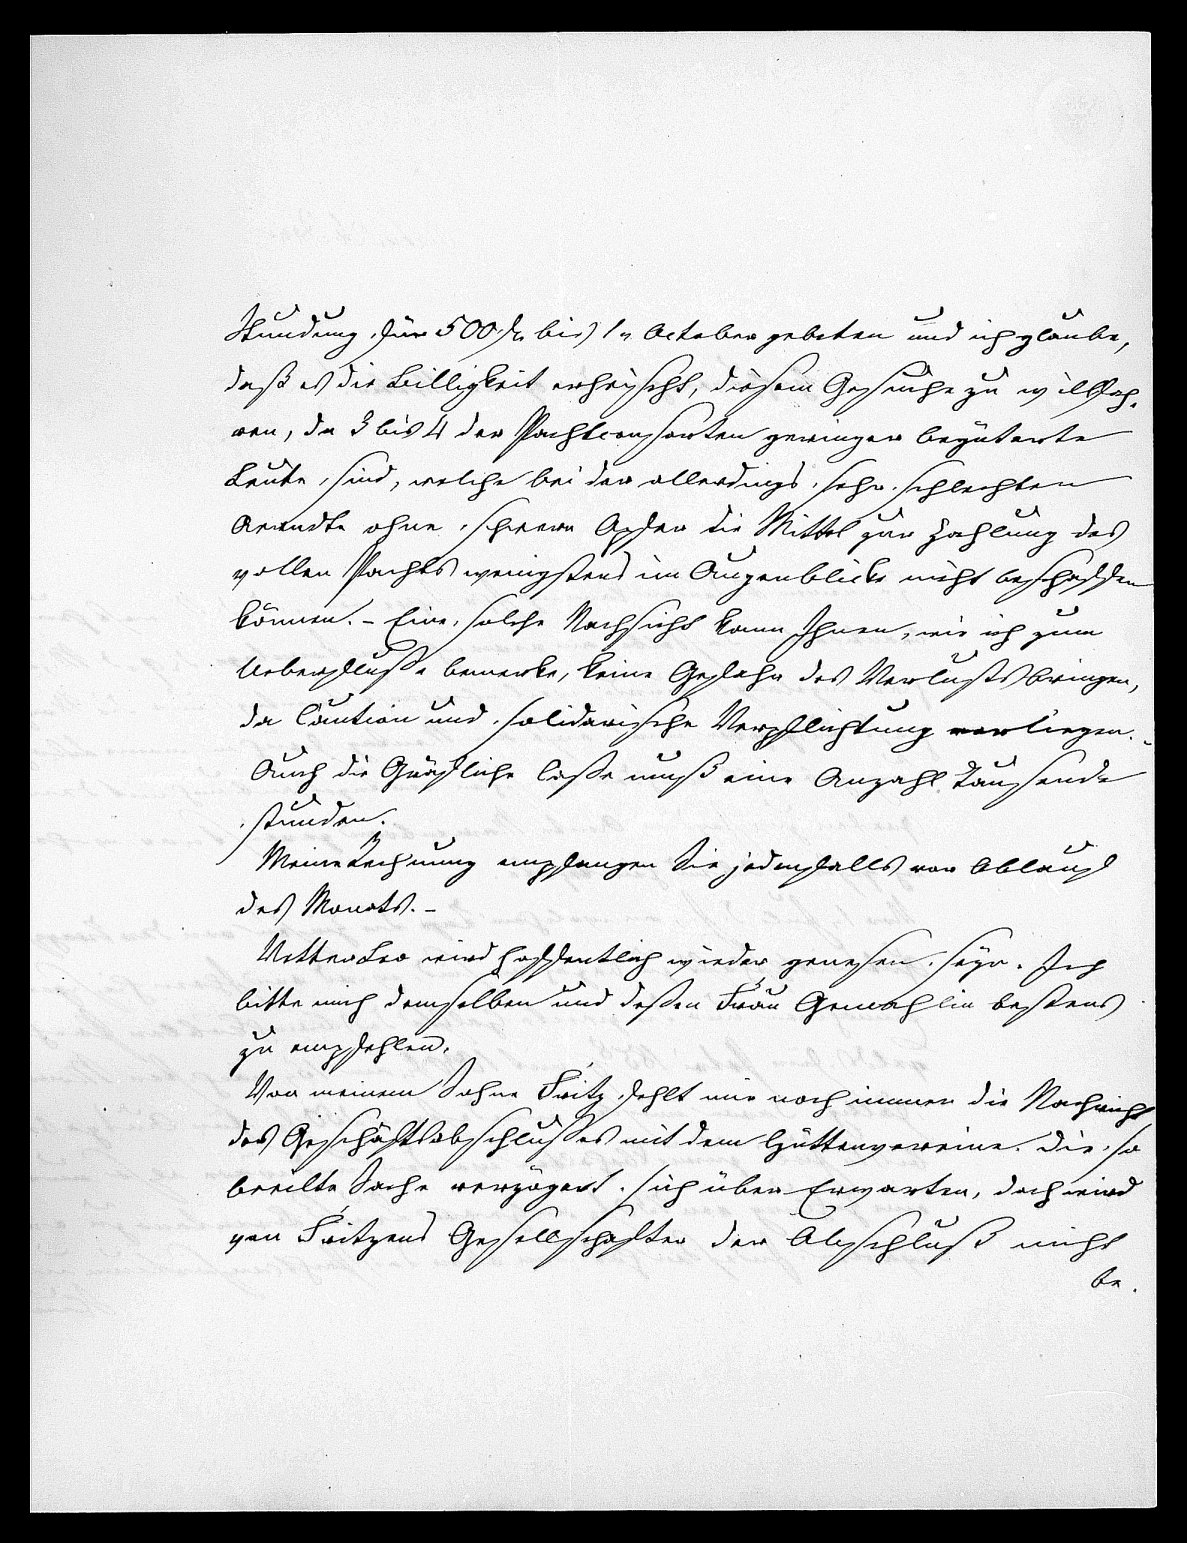 Stundung für 500 h bis 1n October gebeten und ich glaube,
daß es die Billigkeit erheischt, diesem Gesuche zu willfah-
ren, da 3 bis 4 der Pachtconsorten geringer begüterte
Leute sind, welche bei der allerdings sehr schlechten
Aerndte ohne schwere Opfer die Mittel zur Zahlung des
vollen Pachts wenigstens im Augenblicke nicht beschaffen
können. – Eine solche Nachsicht kann Ihnen, wie ich zum
Ueberfluße bemerke, keine Gefahr des Verlusts bringen,
da Caution und solidarische Verpflichtung vorliegen. –
Auch die Gräfliche Casse muß eine Anzahl Tausende
stunden.
Meine Rechnung empfangen Sie jedenfalls vor Ablauf
des Monats. –
Vetter Leo wird hoffentlich wieder genesen seyn. Ich
bitte mich demselben und deßen Frau Gemahlin bestens
zu empfehlen.
Von meinem Sohne Fritz fehlt mir noch immer die Nachricht
des Geschäftsabschlußes mit dem Hüttenvereine. Die so
beeilte Sache verzögert sich über Erwarten, doch wird
von Fritzens Gesellschafter der Abschluß nicht
be-